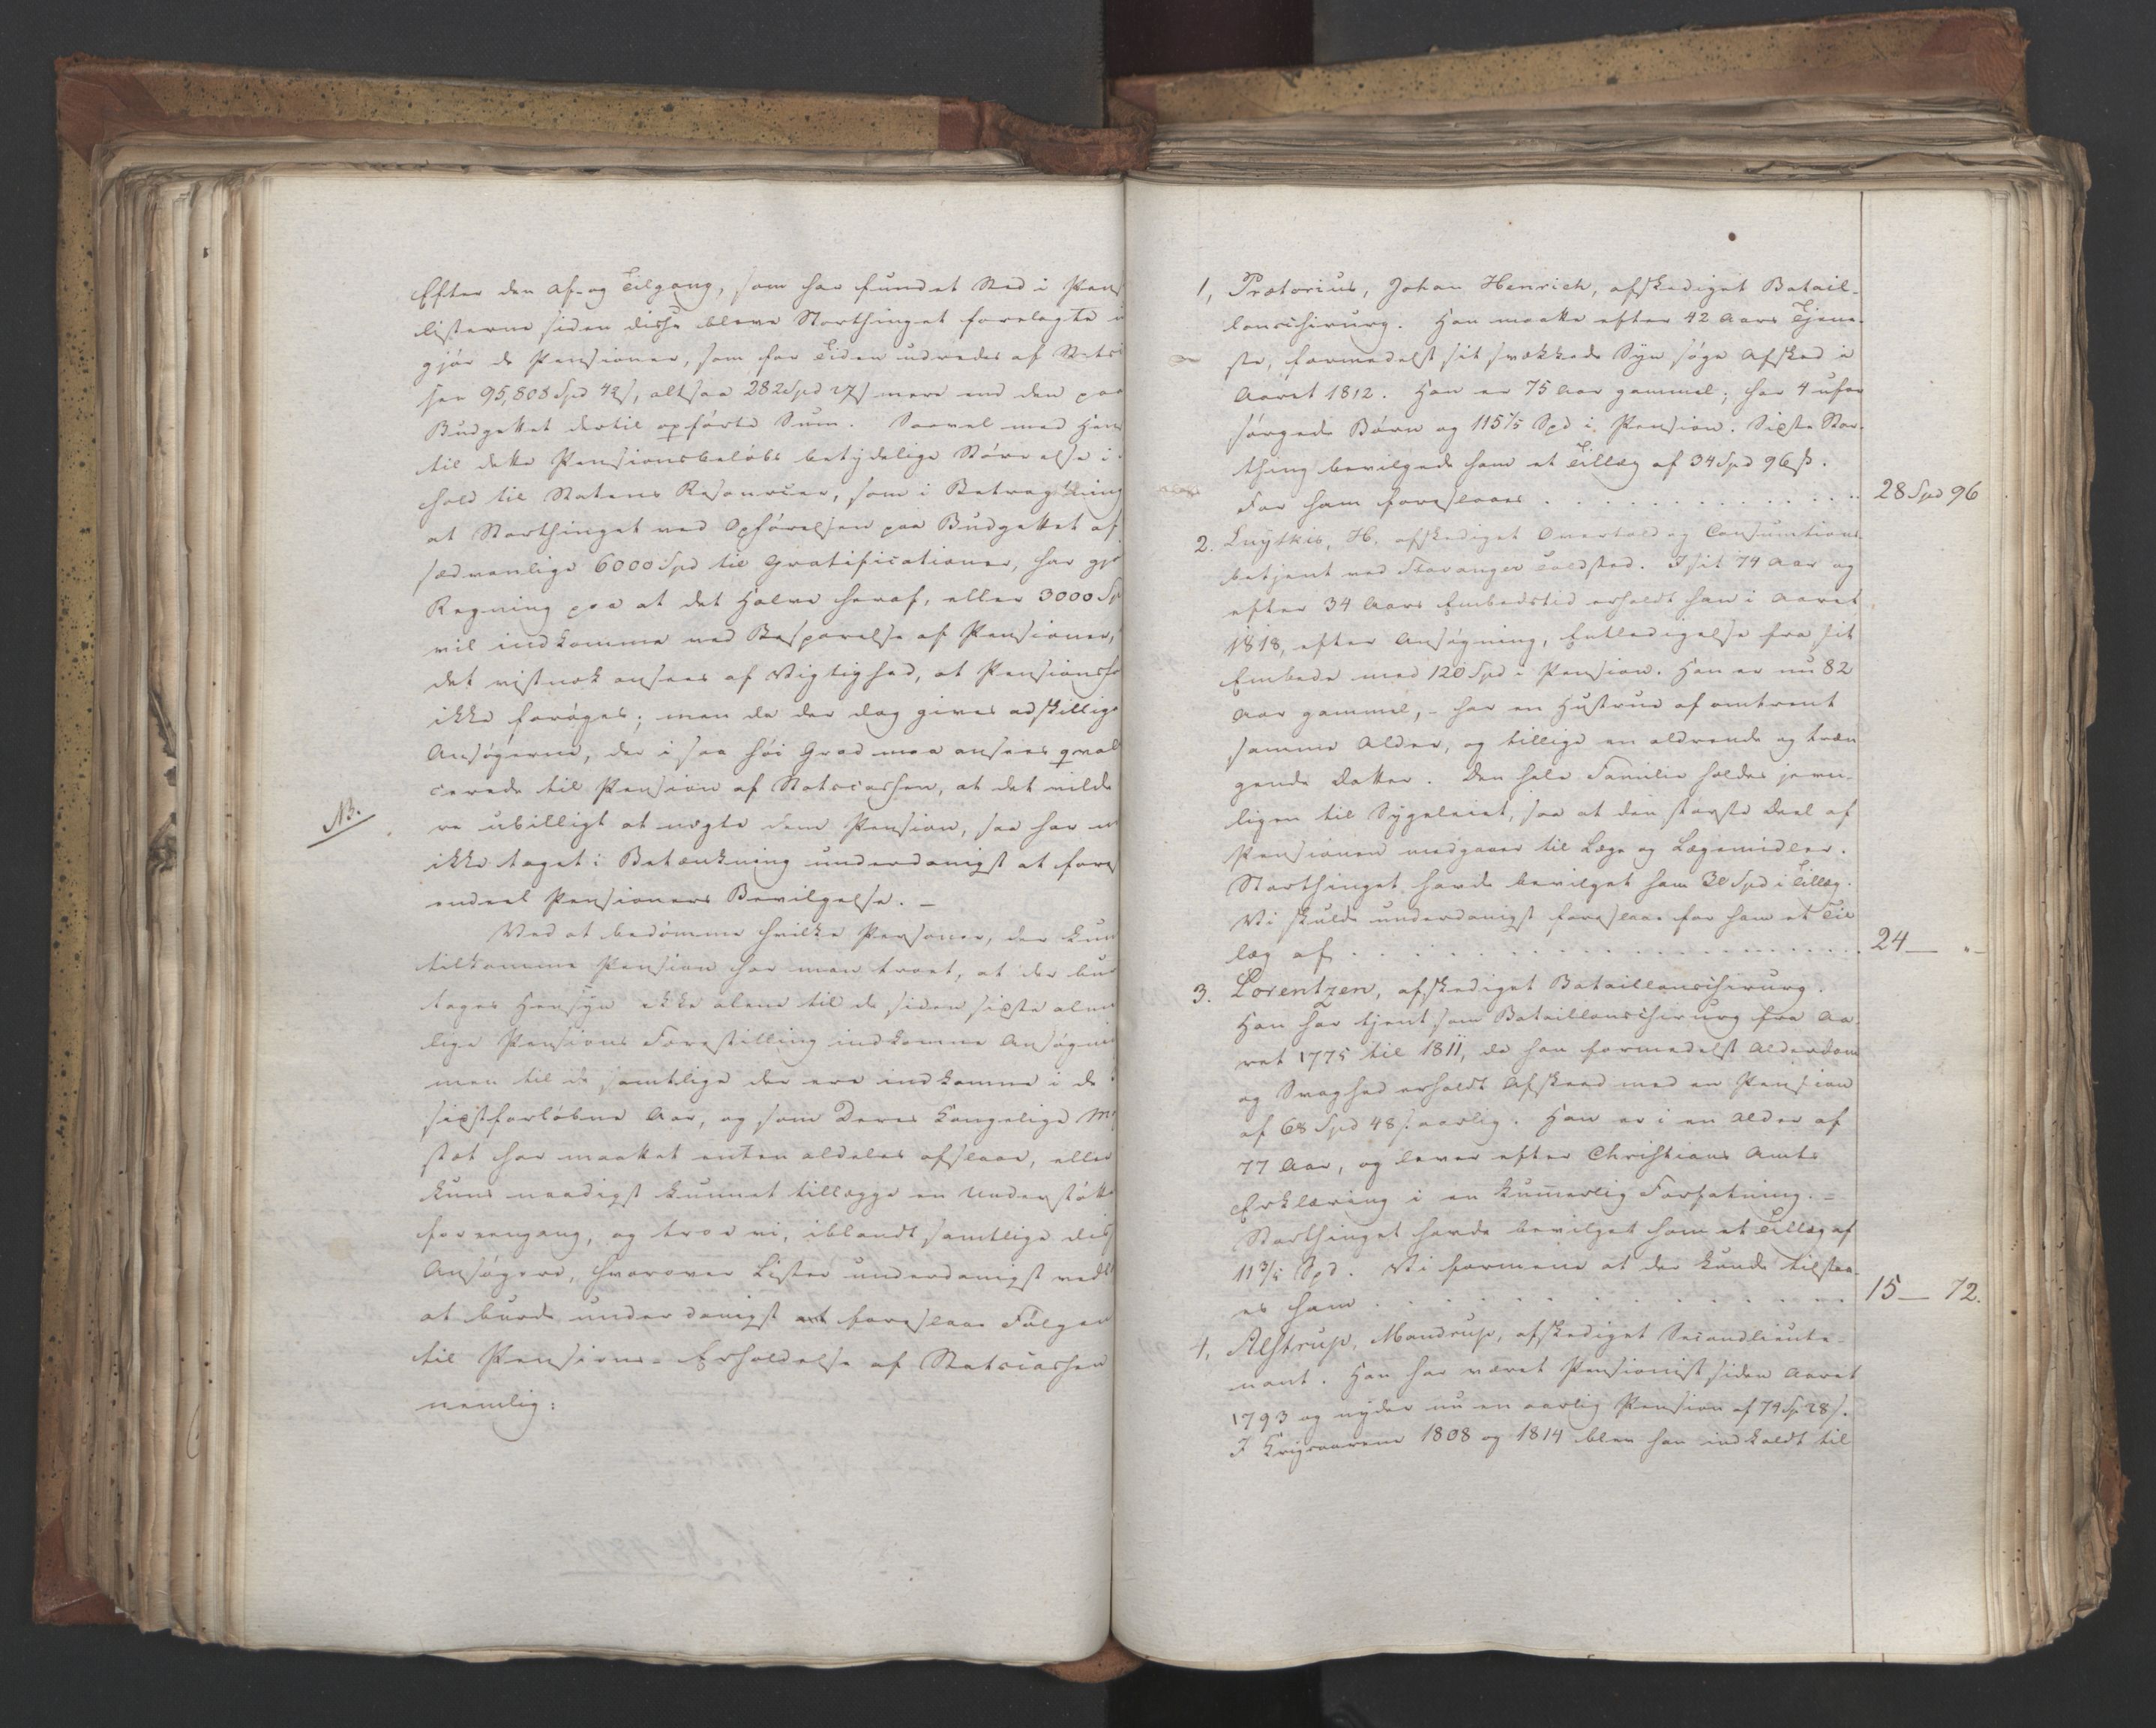 Efter den Af- og Tilgang, som har fundet Sted i Pens
listerne siden disse bleve Storthinget forelagte u
gjør de Pensioner, som for Tiden udredes af Statsc
sen 95,808 Spd 42 s, altsaa 282 Spd 27 s mere end den paa
Budgettet dertil opførte Sum. Saavel med Hen
til dette Pensionsbeløbs betydelige Størrelse i
hold til Statens Resourcer, som i Betragtning
at Storthinget ved Opførelsen paa Budgettet af
sædvanlige 6000 Spd til Gratificationer, har gjo
Regning paa at det Halve heraf, eller 3000 Sp
vil indkomme ved Besparelse af Pensioner,
det vistnok ansees af Vigtighed, at Pensions
ikke forøges; men da der dog gives adskillige
Ansøgerne, der i saa høi Grad maa ansees qvali
cerede til Pension af Statscassen, at det vilde
NB.
re ubilligt at nægte dem Pension, saa har
ikke taget i Betænkning underdanigst at fores
endeel Pensioners Bevilgelse. –
Ved at bedømme hvilke Personer, der kun
tilkomme Pension har man troet, at der bur
tages Hensyn ikke alene til de siden sidste alm
lige Pensions Forestilling indkomne Ansøgni
men til de samtlige der ere indkomne i de
sidstforløbne Aar, og som Deres Kongelige M
stæt har maattet enten aldeles afslaae, eller
kuns naadigst kunnet tillægge en Understøtte
for eengang, og troe vi, iblandt samtlige dis
Ansøgere, hvorover Lister underdanigst vedl
at burde underdanigst foreslaae Følgen
til Pensions-Erholdelse af Statscassen
nemlig:
1, Prætorius, Johan Henrich, afskediget Batail-
lonschirurg. Han maatte efter 42 Aars Tjene-
ste, formedelst sit svækkede Syn søge Afsked i
Aaret 1812. Han er 75 Aar gammel; har 4 ufor
sørgede Børn og 115 1/5 Spd i Pension. Sidste Stor-
thing bevilgede ham et Tillæg af 34 Spd 96 s.
For ham foreslaaes . . . . . . . . . . . . 28 Spd 96
2. Luytkis, H. afskediget Overtold og Consumtions-
betjent ved Stavanger Toldsted. I sit 74 Aar og
efter 34 Aars Embedstid erholdt han i Aaret
1818, efter Ansøgning, Entledigelse fra sit
Embede med 120 Spd i Pension. Han er nu 82
Aar gammel, – har en Hustrue af omtrent
samme Alder, og tillige en aldrende og træn
gende Datter. Den hele Familie holdes jevn-
ligen til Sygeleiet, saa at den største Deel af
Pensionen medgaaer til Læge og Lægemidler.
Storthinget havde bevilget ham 30 Spd i Tillæg.
Vi skulde underdanigst foreslaae for ham et Til
læg af . . . . . . . . . . . . . . . . . . . 24 — " -
3. Lorentzen, afskediget Bataillonschirurg.
Han har tjent som Bataillonschirurg fra Aa-
ret 1775 til 1811, da han formedelst Alderdom
og Svaghed erholdt Afskeed med en Pension
af 68 Spd 48 s. aarlig. Han er i en Alder af
77 Aar, og lever efter Christians Amts
Erklæring i en kummerlig Forfatning. =
Storthinget havde bevilget ham et Tillæg af
11 3/5 Spd. Vi formene at der kunde tilstaa-
es ham . . . . . . . . . . . . . . . 15 — 72.
4, Alstrup, Mandrup, afskediget Secondlieute-
nant. Han har været Pensionist siden Aaret
1793 og nyder nu en aarlig Pension af 74 Sp 28 s.
I Krigsaarene 1808 og 1814 blev han indkaldt til